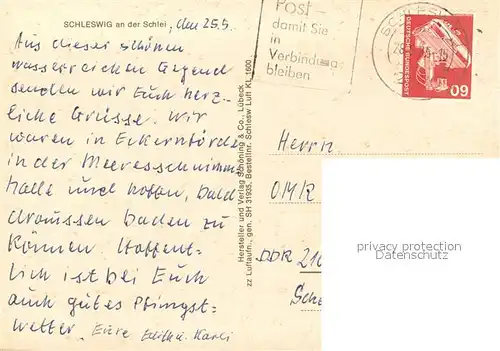 SCHLESWIG an der Schlei, den 25.5.
Aus dieser schönen
wasserreichen Gegend
senden wir Euch herz-
liche Grüsse. Wir
waren in Eckernförde
in der Meeresschwimm
halle und hoffen, bald
draussen baden zu
können. Hoffent-
lich ist bei Euch
auch gutes Pfingst-
wetter. Eure Edith u. Karli
Hersteller und Verlag Schöning & Co., Lübeck
zz Luftaufn., gen. SH 31535, Bestellnr. Schlesw Luft Kl. 1600
Post -
damit Sie
in
Verbindung
bleiben
SCHLESW
DEUTSCHE BUNDESPOST
60
Herrn
OMR
DDR 210
Sch
privacy protection
Datenschutz